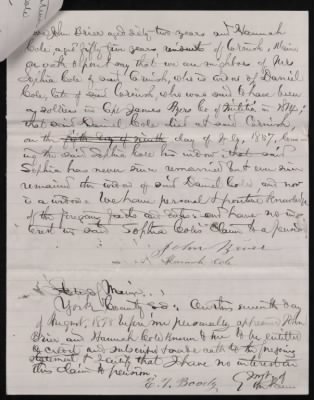 We John Brier aged sixty two years and Hannah
Cole, aged fifty five years residents of Cornish, Maine
on oath depose & say that we are neighbors of Mrs
Sophia Cole of said Cornish, who is widow of Daniel
Cole, late of said Cornish, who was said to have been
a soldier in Capt James Ayres Co of Militia in 1814;
that said Daniel Cole died at said Cornish,
on the day of July, 1857, leav-
ing the said Sophia Cole his widow, that said
Sophia has never since remarried but ever since
remained the widow of said Daniel Cole and now
is a widow. We have personal & positive knowledge
of the foregoing facts and have no in-
terest in said Sophia Coles' claim to a pension
John Brier
Hannah Cole
State of Maine
York County SS. On this seventh day
of August, 1878 before me personally appeared John
Brier and Hannah Cole known to me to be entitled
to credit and subscribed & made oath to the foregoing
statement & I say that I have no interest in
this claim to pension.